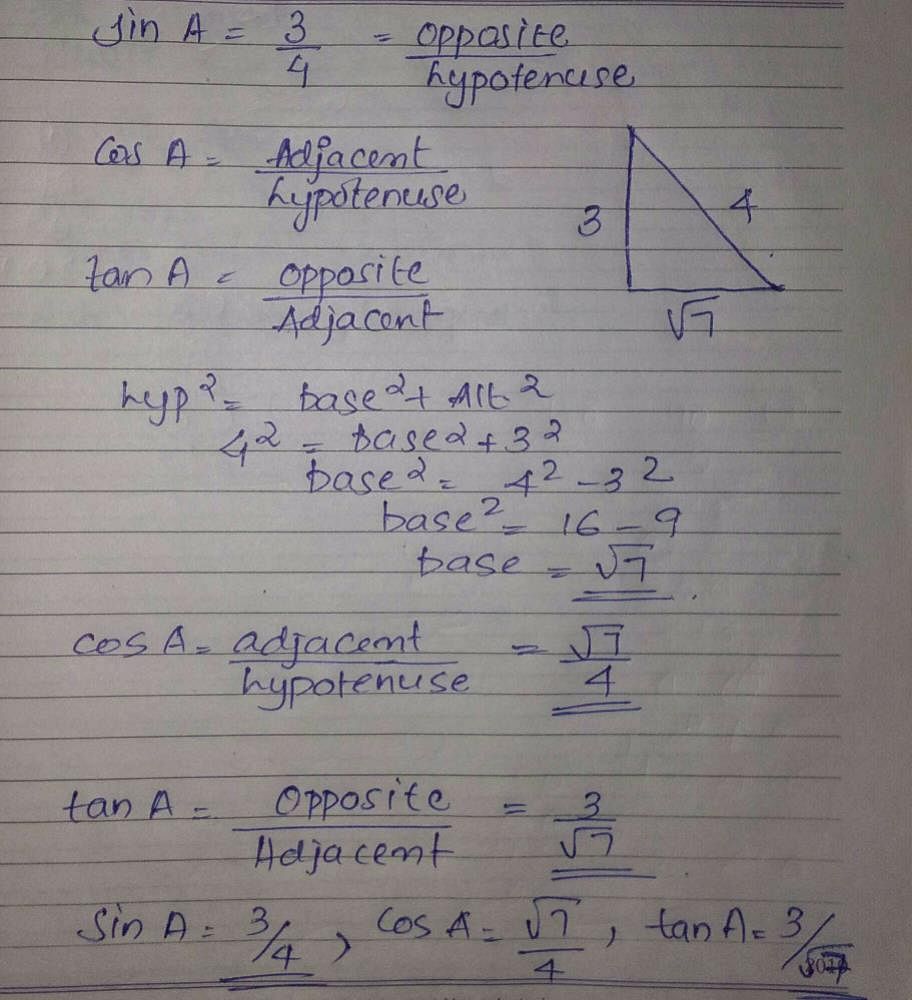 sin A = 3/4 = opposite/hypotenuse
cos A = Adjacent/hypotenuse
3
4
√7
tan A = opposite/Adjacent
hyp² = base² + Alt²
4² = base² + 3²
base² = 4² - 3²
base² = 16 - 9
base = √7
cos A = adjacent/hypotenuse = √7/4
tan A = Opposite/Adjacent = 3/√7
Sin A = 3/4, cos A = √7/4, tan A = 3/√7